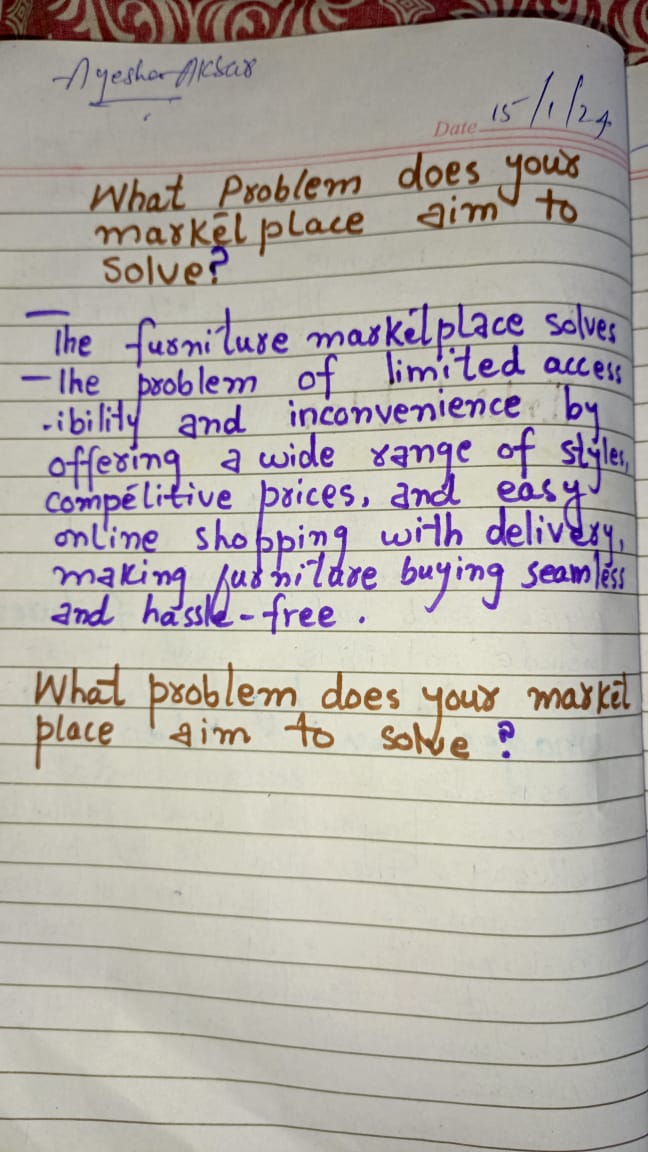 Ayesha Aksar
Date 15/1/24
What Problem does your
market place aim to
Solve?
The furniture market place solves
the problem of limited access
-ibility and inconvenience by
offering a wide range of styles,
competitive prices, and easy
online shopping with delivery,
making furniture buying seamless
and hassle-free.
What problem does your market
place aim to solve?